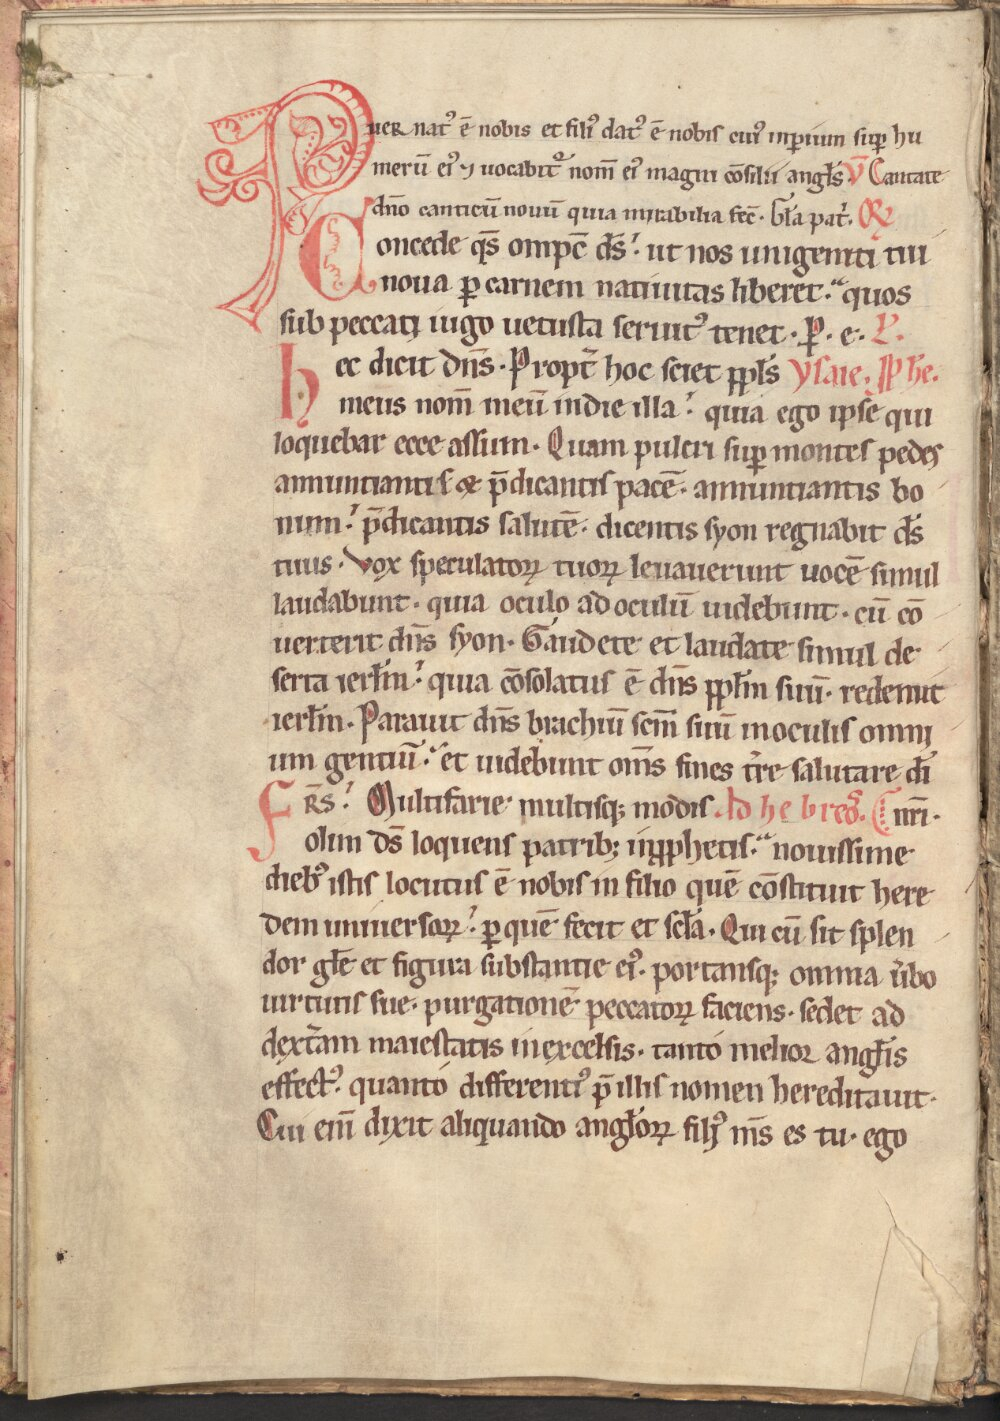 Puer nat᾽ ē nobis et fili᾽ dat᾽ ē nobis cui᾽ inperium sup̄ hu
merū ei᾽ ⁊ uocabit᾽ nom̄ ei᾽ magni cōsilii angl̄s. V̄ Cantate
dn̄o canticū nouū quia mirabilia fec̄. Gl̄a pat͛. OR̄
Concede qs̄ omp̄c d̄s᾽. ut nos unigeniti tui
noua ꝑ carnem natiuitas liberet. quos
sub peccati iugo uetusta seruit᾽ tenet. P. e. L.
hec dicit dn̄s. Propt̄ hoc sciet ppl̄s ysaie. pph̄e.
meus nom̄ meū in die illa᾽. quia ego ipse qui
loquebar ecce assum. Quam pulcri sup̄ montes pedes
annuntiantis & p̄dicantis pacē. annuntiantis bo
num᾽. p̄dicantis salutē. dicentis syon regnabit d̄s
tuus. Vox speculatoꝝ tuoꝝ leuauerunt uocē simul
laudabunt. quia oculo ad oculū uidebunt. cū cō
uerterit dn̄s syon. Gaudete et laudate simul de
serta ierl̄m᾽. quia cōsolatus ē dn̄s ppl̄m suū. redemit
ierl̄m. Parauit dn̄s brachiū scm̄ suū in oculis omni
um gentiū. et uidebunt om̄s fines t̄re salutare d̄i
FR̄S᾽. Multifarie multisq; modis Ad hebreos. nr̄i.
olim d̄s loquens patrib; in pphetis. nouissime
dieb᾽ istis locutus ē nobis in filio quē cōstituit here
dem uniuersoꝝ᾽. ꝑ quē fecit et scl̄a. Qui cū sit splen
dor gl̄e et figura substantie ei᾽. portansq; omnia u̅bo
uirtutis sue. purgationē peccatoꝝ faciens. sedet ad
dext̄am maiestatis in excelsis. tanto melior angl̄is
effect᾽. quanto differenti᾽ p̄ illis nomen hereditauit.
Cui eni̅ dixit aliquando angl̄oꝝ fili᾽ m̄s es tu. ego